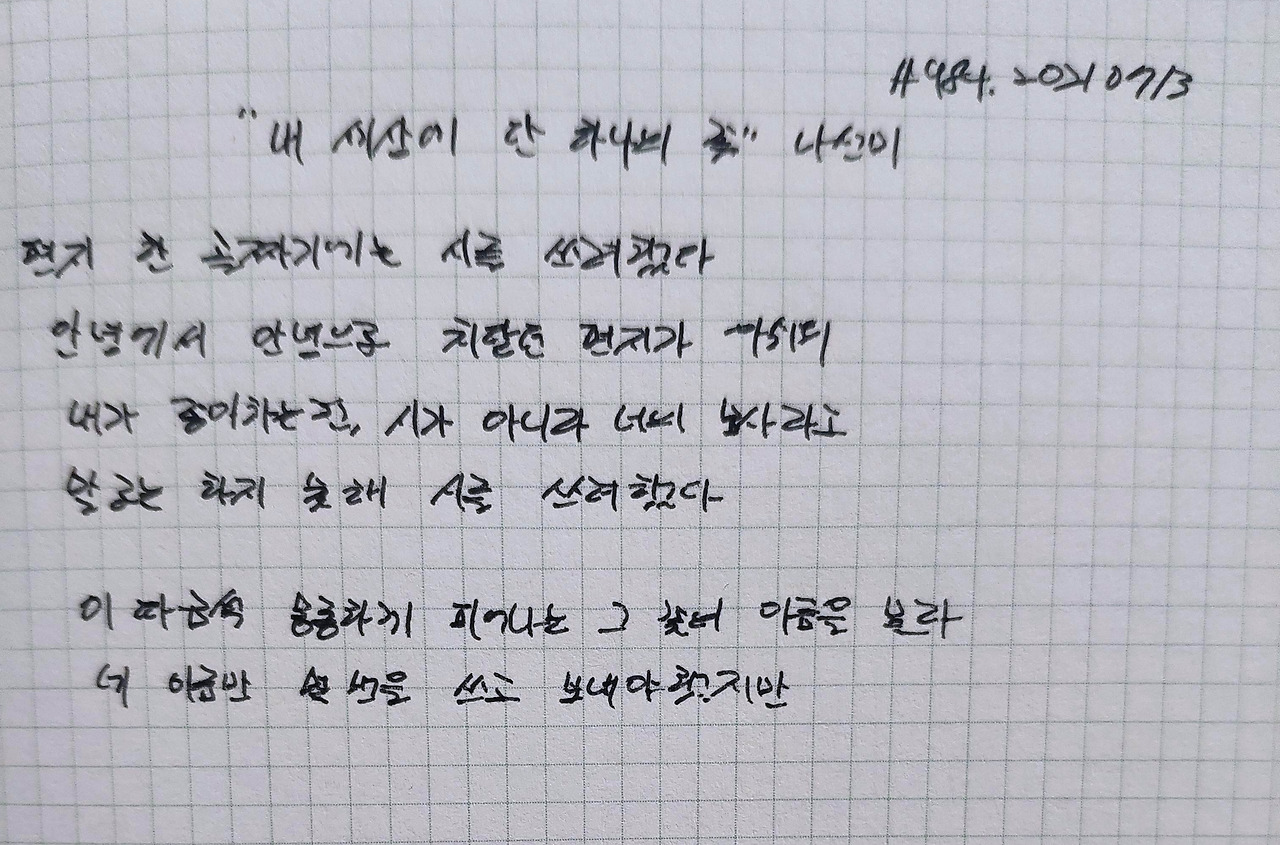 #984. 20210713
"내 세상에 단 하나의 꽃" 나선미
편지 한 골짜기에는 시를 쓰려했다
안녕에서 안녕으로 치닫던 편지가 아쉬워
내가 좋아하는 건, 시가 아니라 너의 낭사라고
말로는 하지 못해 시를 쓰려했다
이따금씩 몽롱하게 피어나는 그 꽃의 이름을 몰라
네 이름만 실컷을 쓰고 보내야 했지만